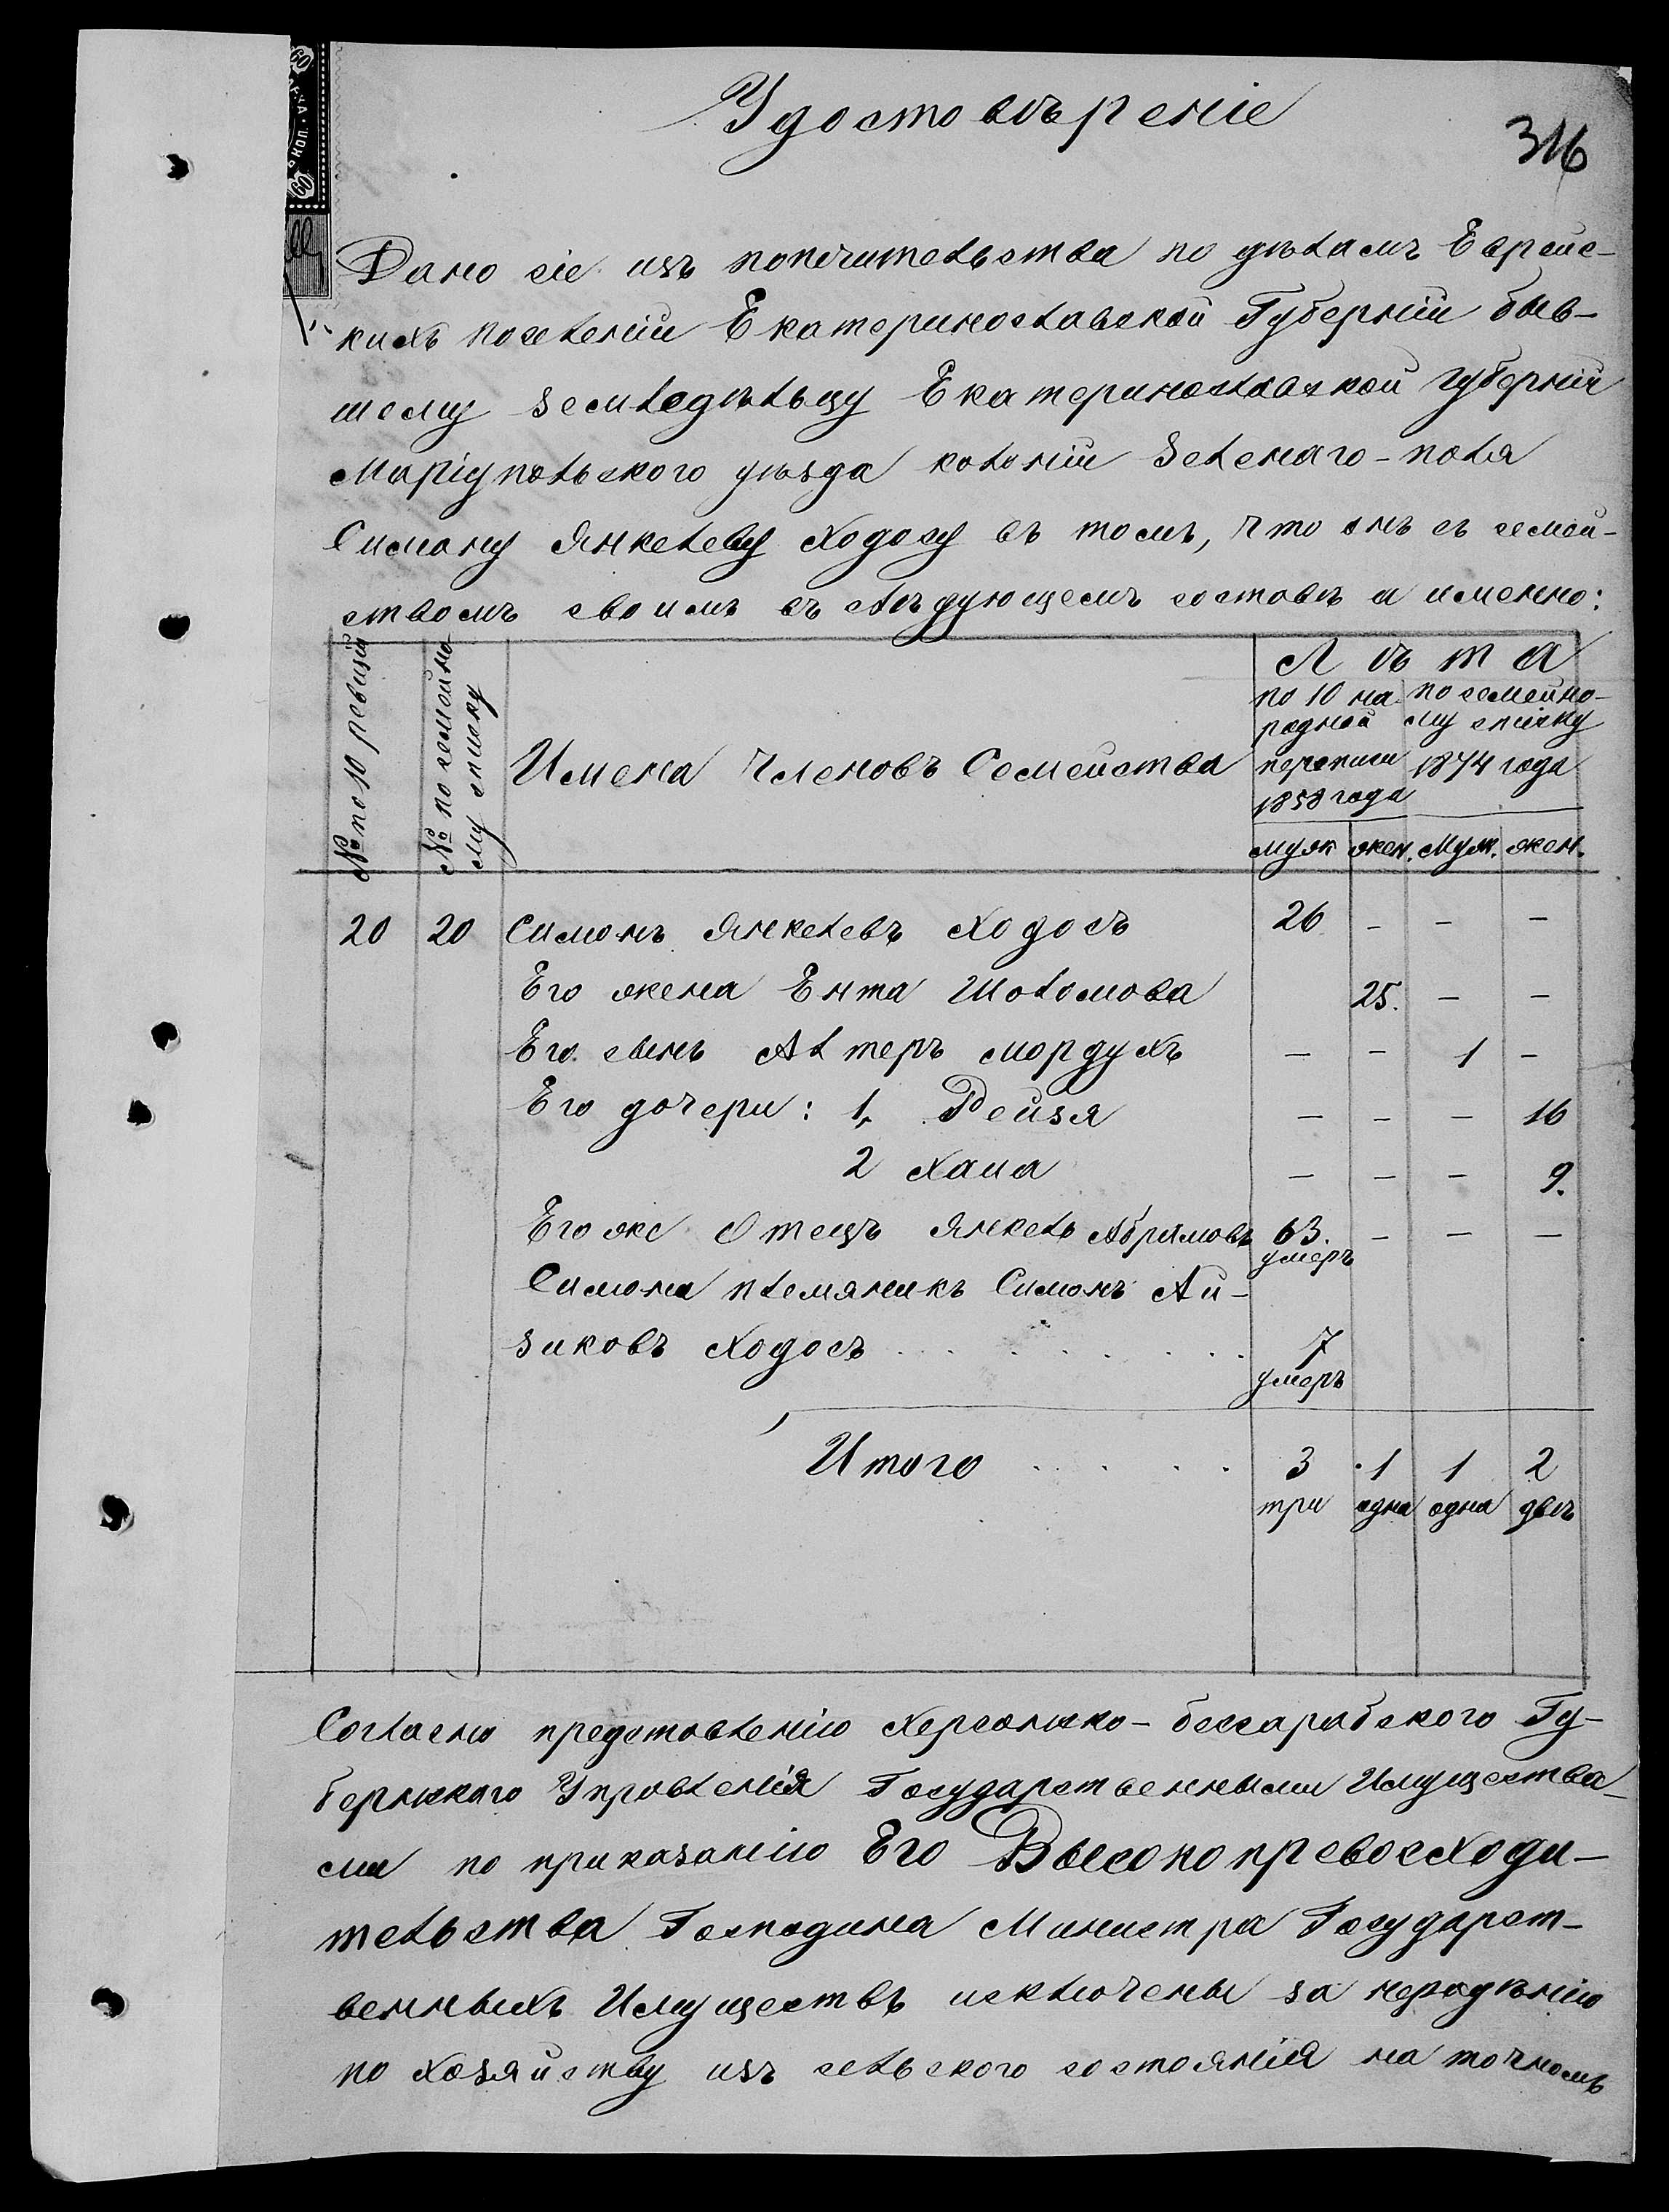 Удостовѣреніе
316
Дано сіе изъ попечительства по дѣламъ Еврейс-
кихъ поселеній Екатеринославской Губерніи быв-
шему земледѣльцу Екатеринославской губерніи
Маріупольского уѣзда колоніи Зеленаго-поля
Симону Янкелеву Ходосу въ томъ, что онъ съ семей-
ствомъ своимъ въ слѣдующемъ составѣ а именно:
№ по 10 ревизіи
№ по семейно-
му списку
Имена Членовъ Семейства
Лѣта
по 10 на-
родной
переписи
1858 года
по семейно-
му списку
1874 года
муж жен. Муж. жен.
20 20 Симонъ Янкелевъ Ходосъ 26 - - -
Его жена Ента Шоломова 25. - -
Его сынъ Алтеръ Мордухъ - - 1 -
Его дочери: 1, Рейзя - - - 16
2 Хана - - - 9.
Его же Отецъ Янкель Абрамовъ 63. - - -
умеръ
Симона племяникъ Симонъ Ай-
зиковъ Ходосъ . . . . . . . . 7
умеръ
Итого . . . . . 3 1 1 2
три одна одна двѣ
Согласно представленію Херсонско-бессарабского Гу-
бернскаго Управленія Государственными Имущества-
ми по приказанію Его Высокопревосходи-
тельства Господина Министра Государст-
венныхъ Имуществъ исключены за нерадѣнію
по хозяйству изъ сельского состоянія на точномъ